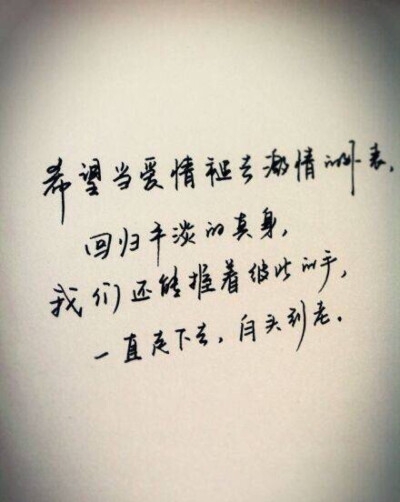 希望当爱情褪去激情的外表，
回归平淡的真身，
我们还能握着彼此的手，
一直走下去，白头到老。